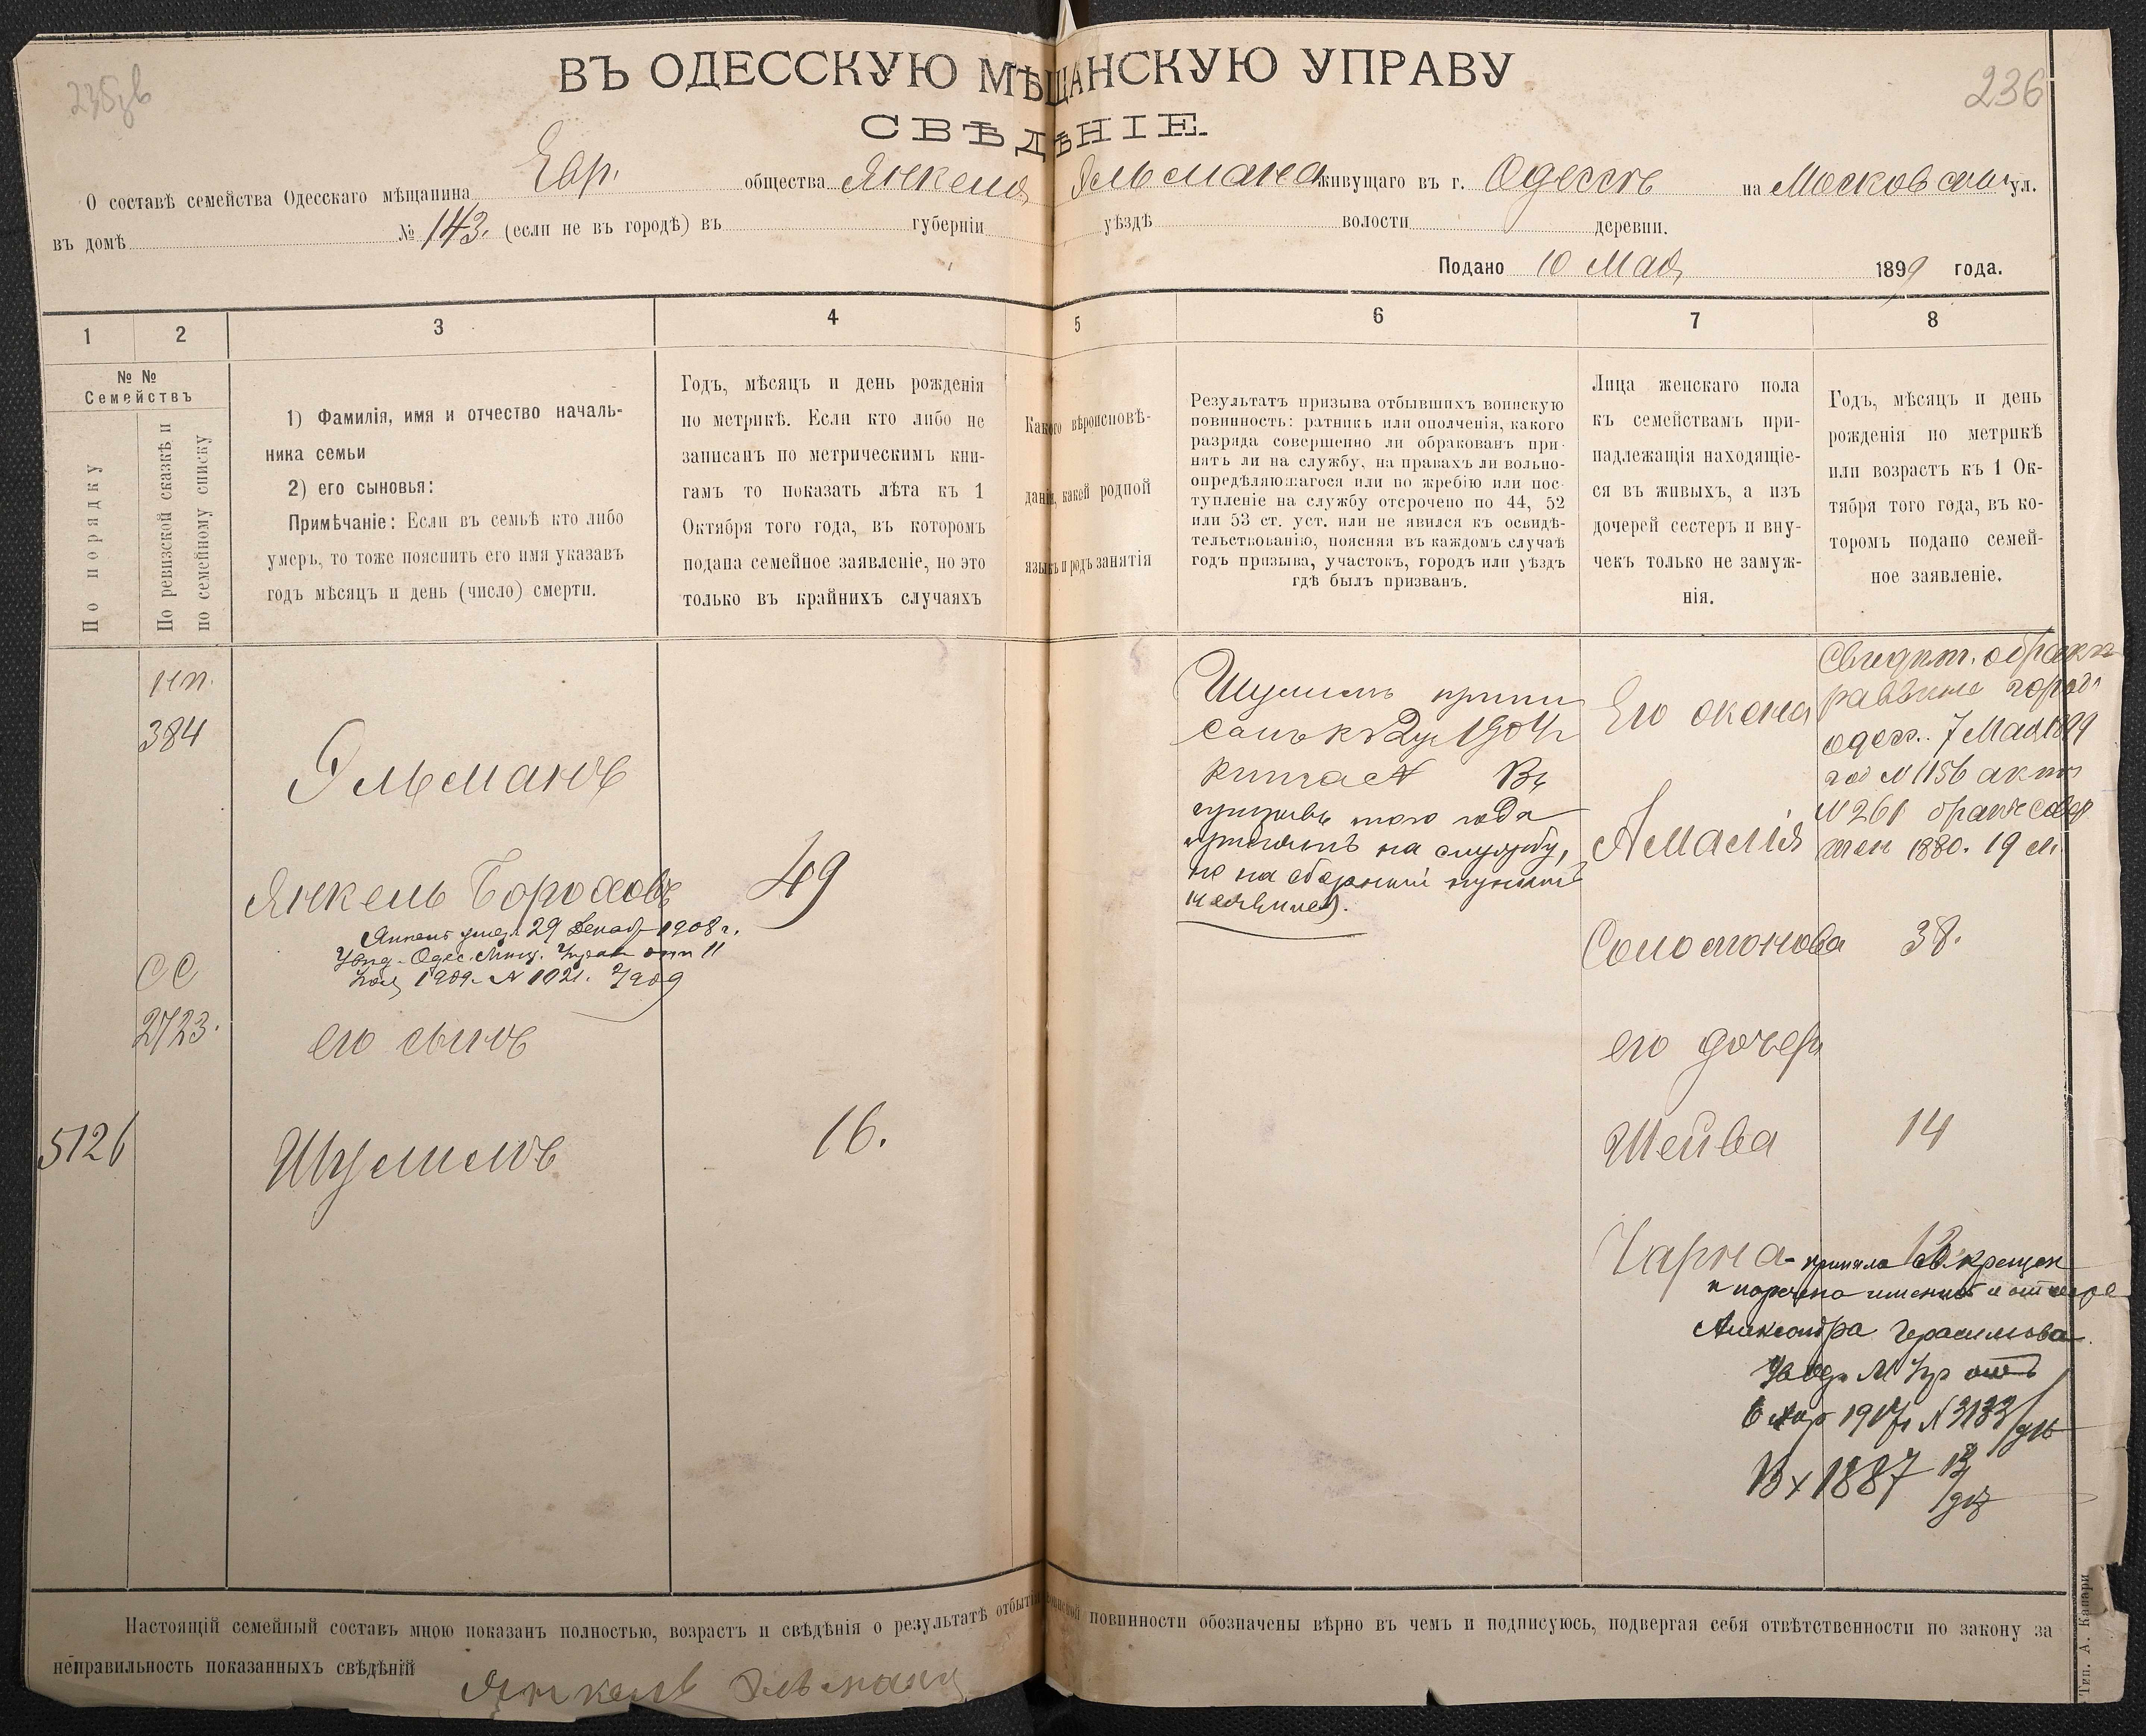 236
ВЪ ОДЕССКУЮ МѢЩАНСКУЮ УПРАВУ
СВѢДѢНІЕ.
О составѣ семейства Одесскаго мѣщанина Евр. общества Янкеля Эльмана живущаго въ г. Одессѣ на Московской ул.
въ домѣ № 143. (если не въ городѣ) въ губерніи уѣздѣ волости деревни.
Подано 10 Мая 1899 года.
1 2 3 4 5 6 7 8
№ № Семействъ
По порядку
По ревизской сказкѣ и
по семейному списку
1) Фамилія, имя и отчество началь-
ника семьи
2) его сыновья:
Примѣчаніе: Если въ семьѣ кто либо
умеръ, то тоже пояснить его имя указавъ
годъ мѣсяцъ и день (число) смерти.
Годъ, мѣсяцъ и день рожденія
по метрикѣ. Если кто либо не
записанъ по метрическимъ кни-
гамъ то показать лѣта къ 1
Октября того года, въ которомъ
подана семейное заявленіе, но это
только въ крайнихъ случаяхъ
Какого вѣроисповѣ-
данія, какой родной
языкъ и родъ занятія
Результатъ призыва отбывшихъ воинскую
повинность: ратникъ или ополченія, какого
разряда совершенно ли обракованъ при-
нятъ ли на службу, на правахъ ли вольно-
опредѣляющагося или по жребію или пос-
тупленіе на службу отсрочено по 44, 52
или 53 ст. уст. или не явился къ освидѣ-
тельствованію, поясняя въ каждомъ случаѣ
годъ призыва, участокъ, городъ или уѣздъ
гдѣ былъ призванъ.
Лица женскаго пола
къ семействамъ при-
надлежащія находящіе-
ся въ живыхъ, а изъ
дочерей сестеръ и вну-
чекъ только не замуж-
нія.
Годъ, мѣсяцъ и день
рожденія по метрикѣ
или возрастъ къ 1 Ок-
тября того года, въ ко-
торомъ подано семей-
ное заявленіе.
384
Эльманъ
Янкель Бороховъ 49
Янкель умеръ 29 Декаб. 1908 г.
Удод. Одес. Мѣщ. Управ. отъ 11
1909. № 1021.
СС
2723.
его сынъ
5126 Шулимъ 16.
Шулимъ припи
санъ къ 2 уч 1904 г
книга А Въ
призывъ того года
принятъ на службу,
но на сборный пунктъ
не явился.
Его жена
Амалія
Соломонова 38.
Свидѣт. о бракѣ
раввина город.
Одес. 7 Мая 1899
год № 1156 актъ
№ 261 бракъ совер
шен 1880. 19 м.
его дочери
Шейва 14
Чарна - приняла св. крещен
и наречена именемъ и отчеств
Александра Герасимова.
Удод. М Упр отъ
6 Мар 1917 г. № 3183
Вх 1887
Настоящій семейный составъ мною показанъ полностью, возрастъ и свѣдѣнія о результатѣ отбытія воинской повинности обозначены вѣрно въ чемъ и подписуюсь, подвергая себя отвѣтственности по закону за
неправильность показанныхъ свѣдѣній Янкель Эльманъ
Тип. А. Капари